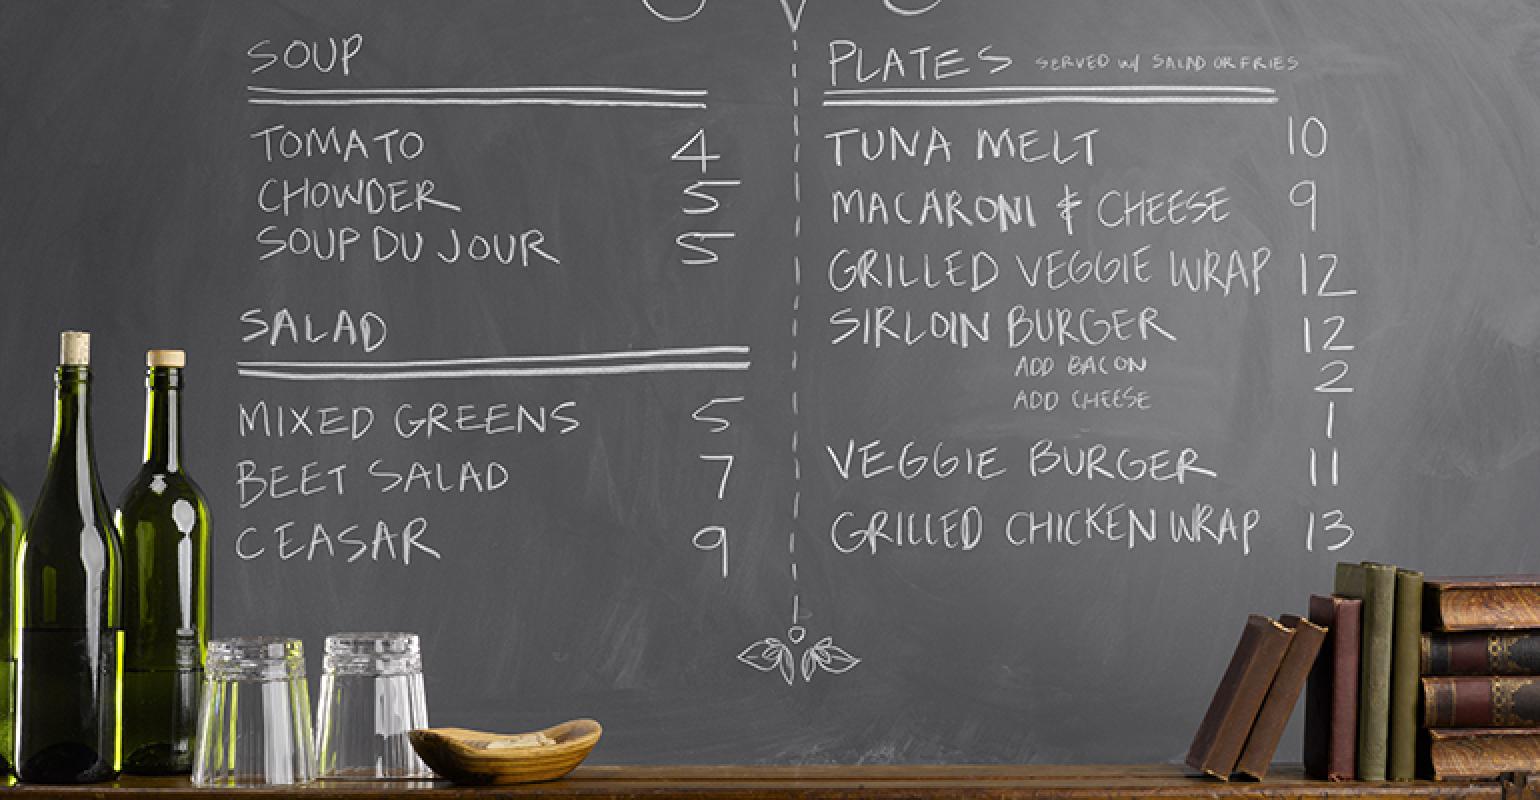 SOUP
TOMATO 4
CHOWDER 5
SOUP DU JOUR 5
SALAD
MIXED GREENS 5
BEET SALAD 7
CEASAR 9
PLATES SERVED W/ SALAD OR FRIES
TUNA MELT 10
MACARONI & CHEESE 9
GRILLED VEGGIE WRAP 12
SIRLOIN BURGER 12
ADD BACON 2
ADD CHEESE 1
VEGGIE BURGER 11
GRILLED CHICKEN WRAP 13